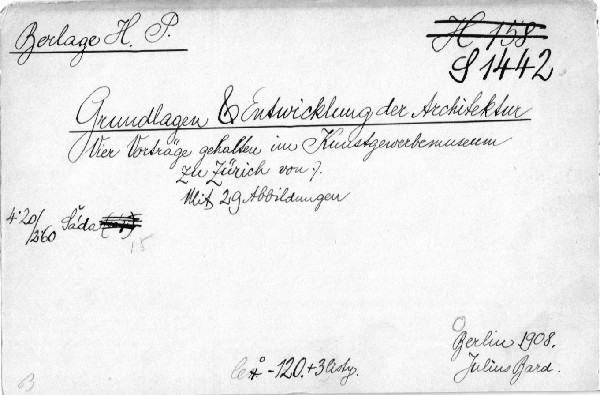 Berlage H. P.
H 158
S 1442
Grundlagen & Entwicklung der Architektur
Vier Vorträge gehalten im Kunstgewerbemuseum
zu Zürich von ?.
Mit 29 Abbildungen
4·20/
2·60
Šáda
15
Berlin 1908.
Julius Bard.
-120.+3 listy.
B